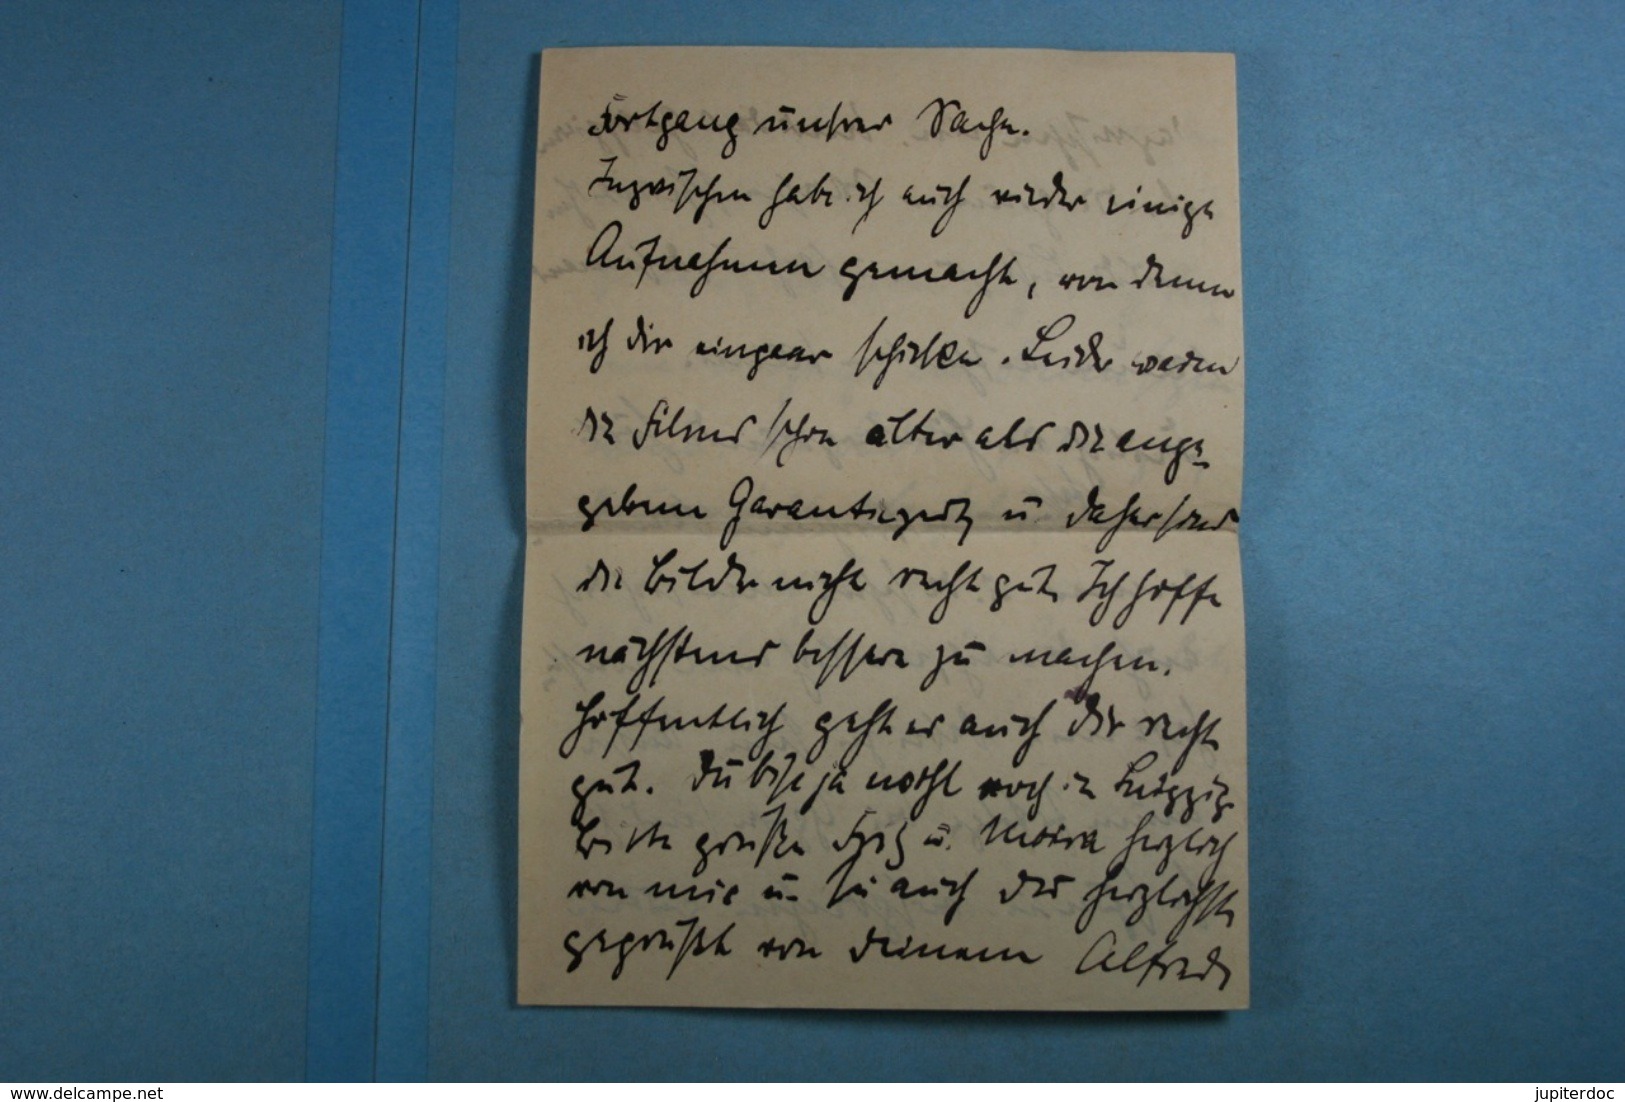 Fortgang unsrer Sache.
Inzwischen habe ich auch wieder einige
Aufnahmen gemacht, von denen
ich dir ein paar schicken. Leider waren
die Films schon älter als die ange-
gebene Garantiezeit u daher sind
die Bilder nicht recht gut. Ich hoffe
nächstens bessere zu machen.
Hoffentlich geht es auch dir recht
gut. Du bist ja wohl noch in Leipzig.
Bitte grüßen Fritz u. herzlich
von mir u. sei auch du herzlichst
gegrüßt von deinem Alfred
www.delcampe.net
jupiterdoc